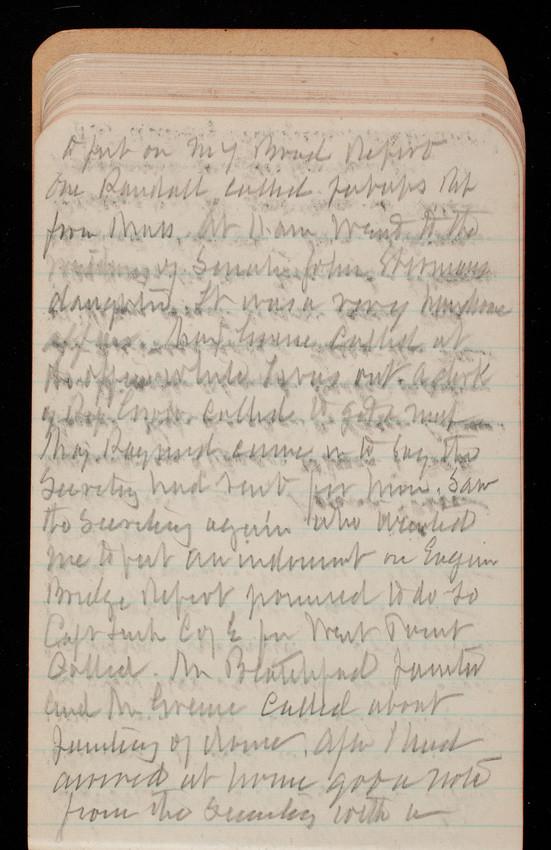 to put on My Broad Report
One Randall called perhaps Rep
from Mass. At 11 am went to the
wedding of Senator John Shermans
daughter. It was a very handsome
affair. Maj Greene called at
the office while I was out. A clerk
of called to get a
Maj Raymond came in to say the
Secretary had sent for him. Saw
the Secretary again who wanted
me to put an indorsment on Engin
Bridge Report promised to do so
Capt Co E for West Point
Called. Mr Blatchford Painter
and Mr Greene called about
Painting of dome. After I had
arrived at home got a note
from the Secretary with a